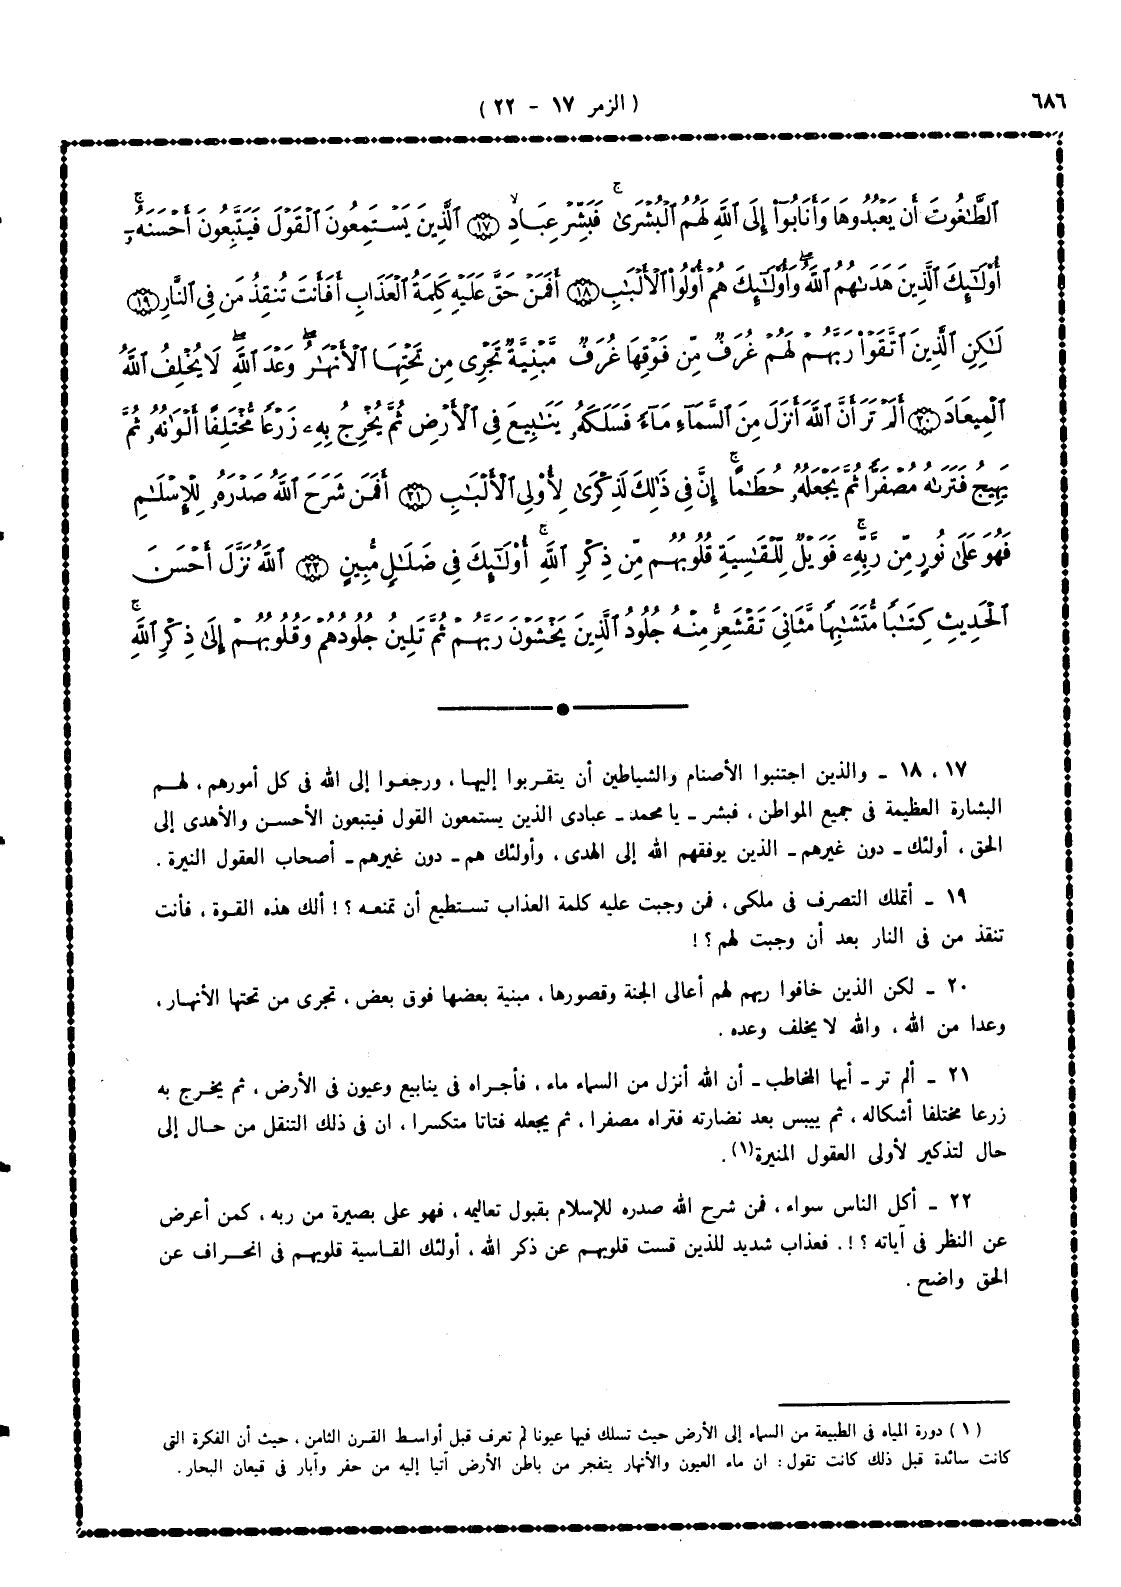 ٦٨٦
( الزمر ١٧ - ٢٢ )
ٱلطَّٰغُوتَ أَن يَعْبُدُوهَا وَأَنَابُوٓا۟ إِلَى ٱللَّهِ لَهُمُ ٱلْبُشْرَىٰ ۚ فَبَشِّرْ عِبَادِ ۙ ﴿١٧﴾ ٱلَّذِينَ يَسْتَمِعُونَ ٱلْقَوْلَ فَيَتَّبِعُونَ أَحْسَنَهُۥٓ ۚ
أُو۟لَٰٓئِكَ ٱلَّذِينَ هَدَىٰهُمُ ٱللَّهُ ۖ وَأُو۟لَٰٓئِكَ هُمْ أُو۟لُوا۟ ٱلْأَلْبَٰبِ ﴿١٨﴾ أَفَمَنْ حَقَّ عَلَيْهِ كَلِمَةُ ٱلْعَذَابِ أَفَأَنتَ تُنقِذُ مَن فِى ٱلنَّارِ ﴿١٩﴾
لَٰكِنِ ٱلَّذِينَ ٱتَّقَوْا۟ رَبَّهُمْ لَهُمْ غُرَفٌ مِّن فَوْقِهَا غُرَفٌ مَّبْنِيَّةٌ تَجْرِى مِن تَحْتِهَا ٱلْأَنْهَٰرُ ۖ وَعْدَ ٱللَّهِ ۖ لَا يُخْلِفُ ٱللَّهُ
ٱلْمِيعَادَ ﴿٢٠﴾ أَلَمْ تَرَ أَنَّ ٱللَّهَ أَنزَلَ مِنَ ٱلسَّمَآءِ مَآءً فَسَلَكَهُۥ يَنَٰبِيعَ فِى ٱلْأَرْضِ ثُمَّ يُخْرِجُ بِهِۦ زَرْعًا مُّخْتَلِفًا أَلْوَٰنُهُۥ ثُمَّ
يَهِيجُ فَتَرَىٰهُ مُصْفَرًّا ثُمَّ يَجْعَلُهُۥ حُطَٰمًا ۚ إِنَّ فِى ذَٰلِكَ لَذِكْرَىٰ لِأُو۟لِى ٱلْأَلْبَٰبِ ﴿٢١﴾ أَفَمَن شَرَحَ ٱللَّهُ صَدْرَهُۥ لِلْإِسْلَٰمِ
فَهُوَ عَلَىٰ نُورٍ مِّن رَّبِّهِۦ ۚ فَوَيْلٌ لِّلْقَٰسِيَةِ قُلُوبُهُم مِّن ذِكْرِ ٱللَّهِ ۚ أُو۟لَٰٓئِكَ فِى ضَلَٰلٍ مُّبِينٍ ﴿٢٢﴾ ٱللَّهُ نَزَّلَ أَحْسَنَ
ٱلْحَدِيثِ كِتَٰبًا مُّتَشَٰبِهًا مَّثَانِىَ تَقْشَعِرُّ مِنْهُ جُلُودُ ٱلَّذِينَ يَخْشَوْنَ رَبَّهُمْ ثُمَّ تَلِينُ جُلُودُهُمْ وَقُلُوبُهُمْ إِلَىٰ ذِكْرِ ٱللَّهِ ۚ
١٧ ، ١٨ ـ والذين اجتنبوا الأصنام والشياطين أن يتقربوا إليها ، ورجعوا إلى الله فى كل أمورهم ، لهم
البشارة العظيمة فى جميع المواطن ، فبشر ـ يا محمد ـ عبادى الذين يستمعون القول فيتبعون الأحسن والأهدى إلى
الحق ، أولئك ـ دون غيرهم ـ الذين يوفقهم الله إلى الهدى ، وأولئك هم ـ دون غيرهم ـ أصحاب العقول النيرة .
١٩ ـ أتملك التصرف فى ملكى ، فمن وجبت عليه كلمة العذاب تستطيع أن تمنعه ؟ ! ألك هذه القوة ، فأنت
تنقذ من فى النار بعد أن وجبت لهم ؟ !
٢٠ ـ لكن الذين خافوا ربهم لهم أعالى الجنة وقصورها ، مبنية بعضها فوق بعض ، تجرى من تحتها الأنهار ،
وعدا من الله ، والله لا يخلف وعده .
٢١ ـ ألم تر ـ أيها المخاطب ـ أن الله أنزل من السماء ماء ، فأجراه فى ينابيع وعيون فى الأرض ، ثم يخرج به
زرعا مختلفا أشكاله ، ثم ييبس بعد نضارته فتراه مصفرا ، ثم يجعله فتاتا متكسرا ، ان فى ذلك التنقل من حال إلى
حال لتذكير لأولى العقول المنيرة (١) .
٢٢ ـ أكل الناس سواء ، فمن شرح الله صدره للإسلام بقبول تعاليمه ، فهو على بصيرة من ربه ، كمن أعرض
عن النظر فى آياته ؟ ! . فعذاب شديد للذين قست قلوبهم عن ذكر الله ، أولئك القاسية قلوبهم فى انحراف عن
الحق واضح .
( ١ ) دورة المياه فى الطبيعة من السماء إلى الأرض حيث تسلك فيها عيونا لم تعرف قبل أواسط القرن الثامن ، حيث أن الفكرة التى
كانت سائدة قبل ذلك كانت تقول : ان ماء العيون والأنهار يتفجر من باطن الأرض آتيا إليه من حفر وآبار فى قيعان البحار .